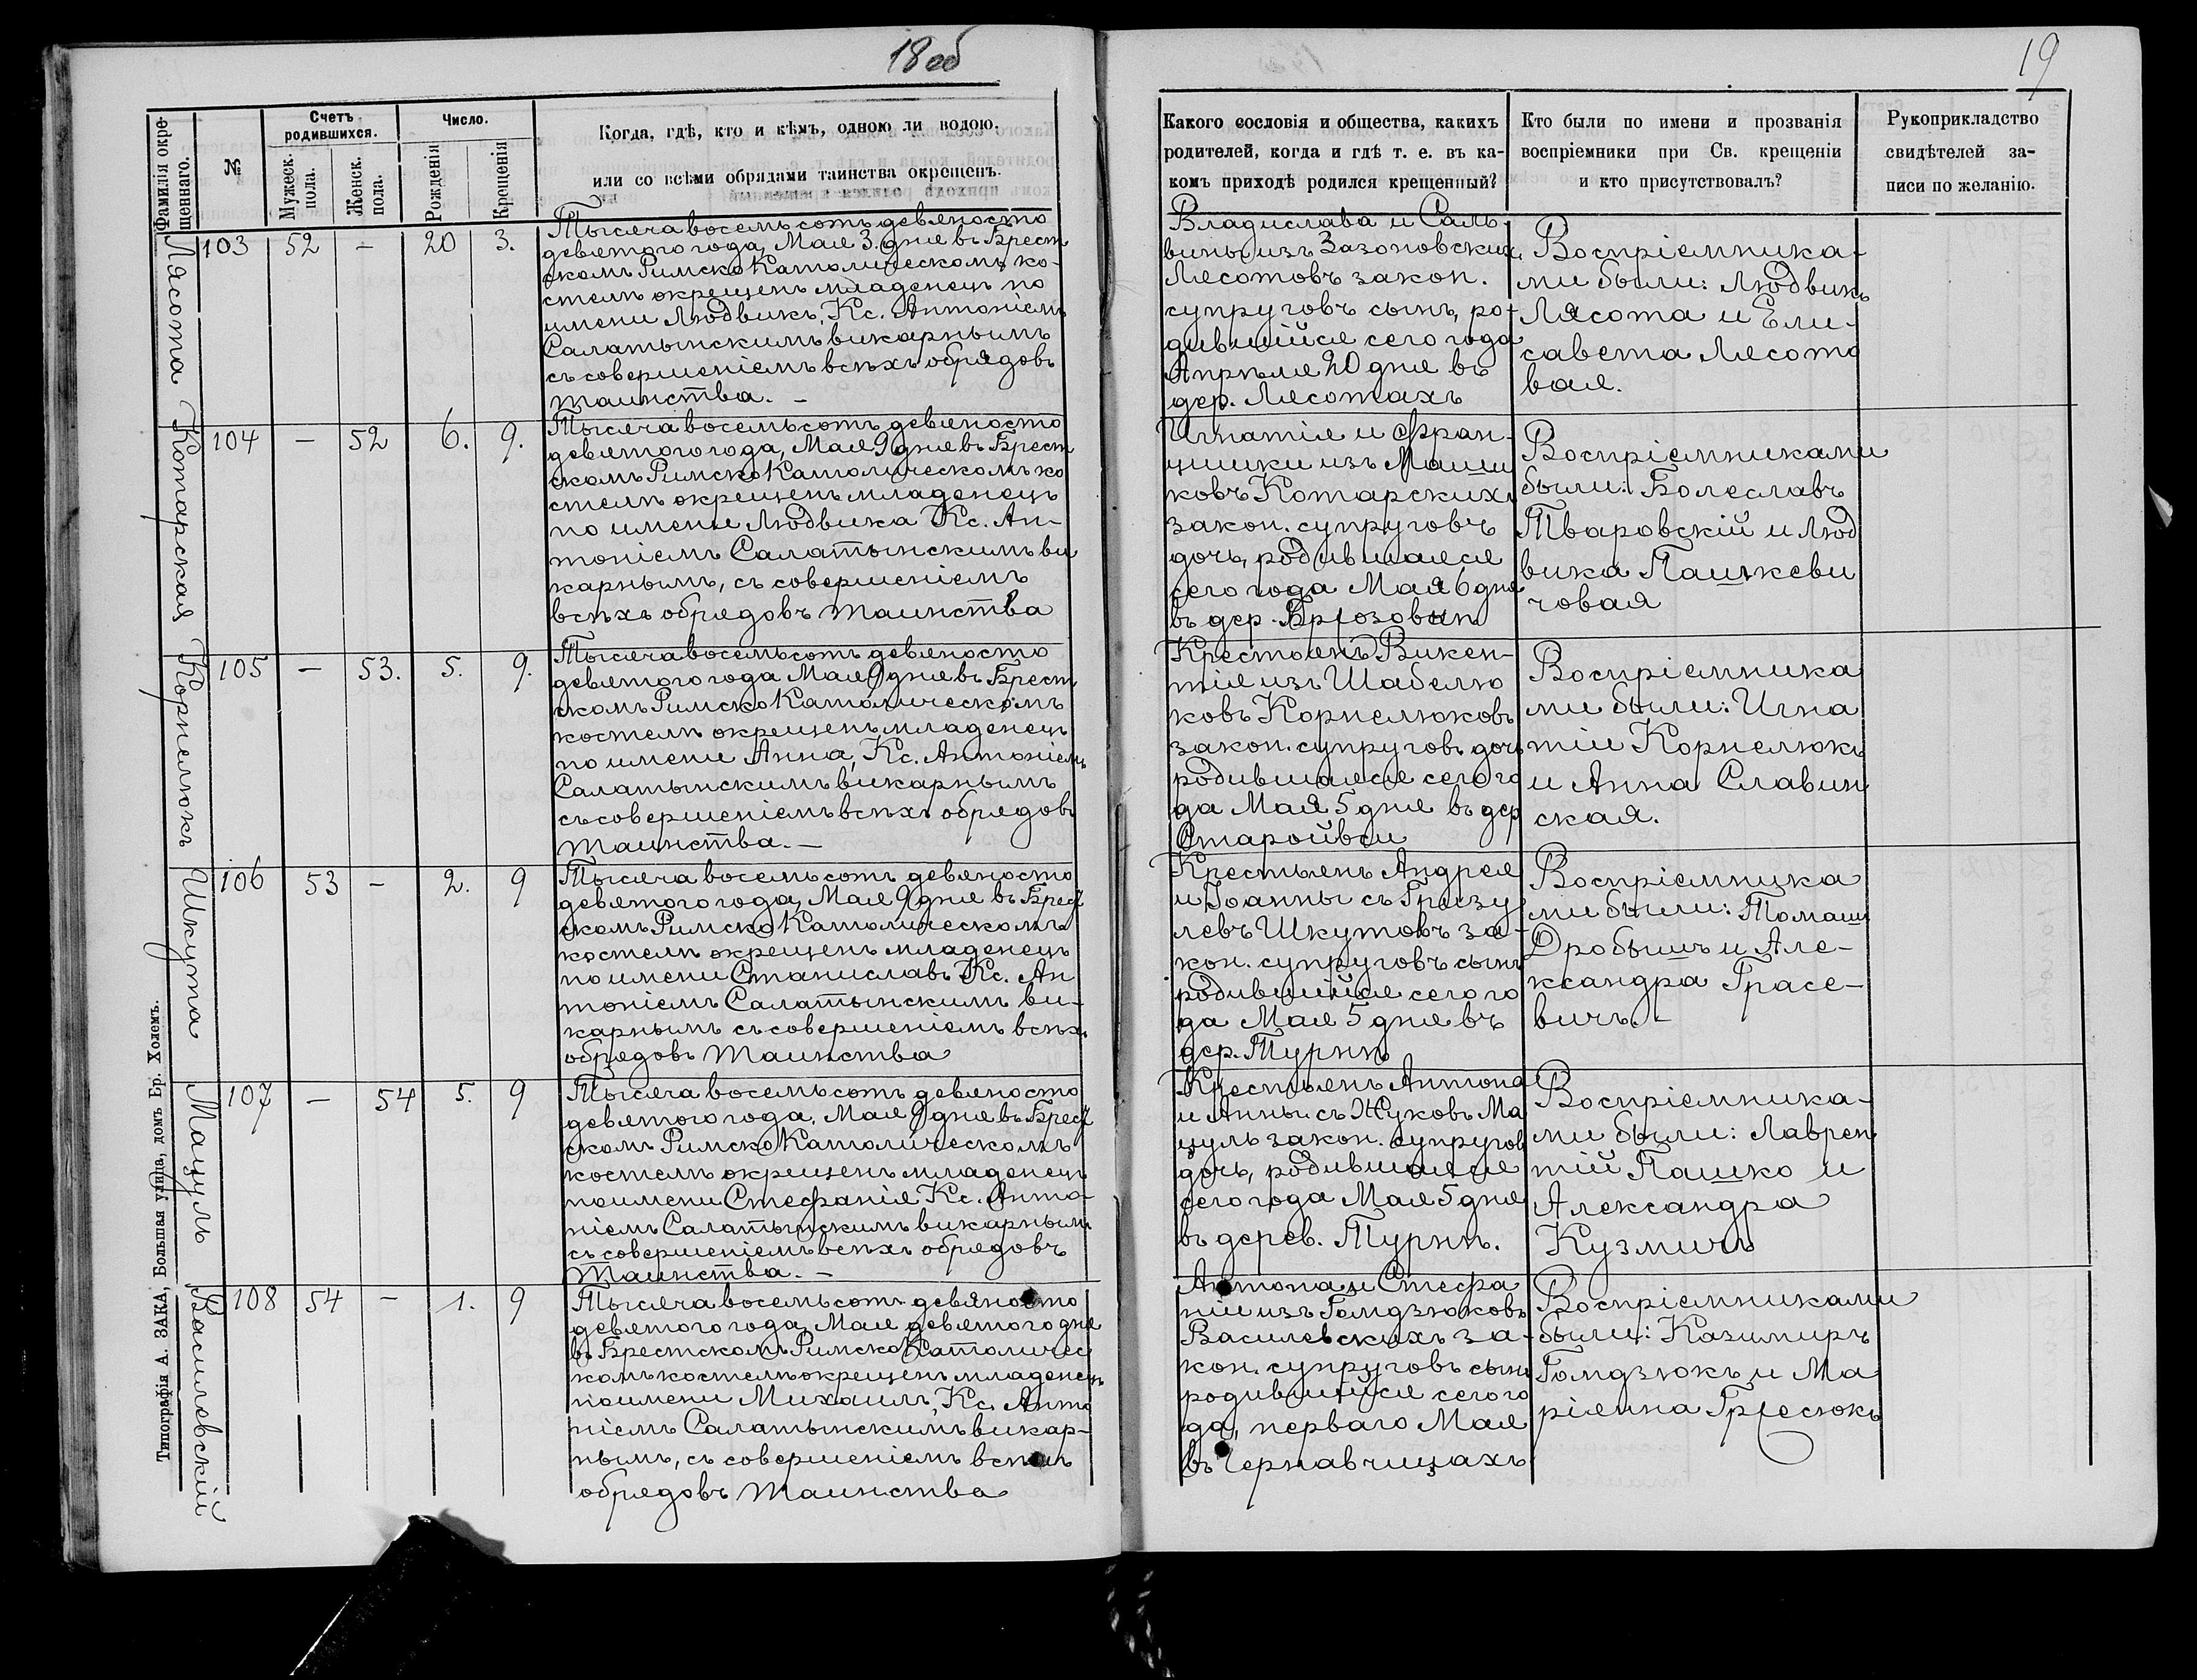 18 об
Фамилія окре-
щеннаго.
№
Счетъ
родившихся.
Мужеск.
пола.
Женск.
пола.
Число.
Рожденія
Крещенія
Когда, гдѣ, кто и кѣмъ, одною ли водою,
или со всѣми обрядами таинства окрещенъ.
Лясота
103 52 – 20 3.
Тысяча восемьсотъ девяносто
девятого года, Мая 3. дня въ Брест
скомъ Римско Католическомъ ко-
стелѣ окрещенъ младенецъ по
имени Людвикъ, Кс. Антоніемъ
Салатынскимъ викарнымъ
съ совершеніемъ всѣхъ обрядовъ
таинства. –
Котарская
104 – 52 6. 9.
Тысяча восемьсотъ девяносто
девятого года, Мая 9 дня въ Брест
скомъ Римско Католическомъ ко
стелѣ окрещенъ младенецъ
по имени Людвика Кс. Ан-
тоніемъ Салатынскимъ ви
карнымъ, съ совершеніемъ
всѣхъ обрядовъ таинства
Корнелюкъ
105 – 53. 5. 9.
Тысяча восемьсотъ девяносто
девятого года Мая 9 дня въ Брест
скомъ Римско Католическомъ
костелѣ окрещенъ младенецъ
по имени Анна, Кс. Антоніемъ
Салатынскимъ викарнымъ
съ совершеніемъ всѣхъ обрядовъ
таинства. –
Шкута
106 53 – 2. 9
Тысяча восемьсотъ девяносто
девятого года, Мая 9 дня въ Брест
скомъ Римско Католическомъ
костелѣ окрещенъ младенецъ
по имени Станиславъ Кс. Ан
тоніемъ Салатынскимъ ви-
карнымъ съ совершеніемъ всѣхъ
обрядовъ таинства
Мацуль
107 – 54 5. 9
Тысяча восемьсотъ девяносто
девятого года, Мая 9 дня въ Брест
скомъ Римско Католическомъ
костелѣ окрещенъ младенецъ
по имени Стефанія Кс. Анто-
ніемъ Салатынскимъ викарнымъ
съ совершеніемъ всѣхъ обрядовъ
таинства. –
Василевскій
108 54 – 1. 9
Тысяча восемьсотъ девяносто
девятого года, Мая девятого дня
въ Брестскомъ Римско Католичес
комъ костелѣ окрещенъ младенецъ
по имени Михаилъ, Кс. Анто
ніемъ Салатынскимъ викар-
нымъ, съ совершеніемъ всѣхъ
обрядовъ таинства
Типографія А. ЗАКА, Большая улица, домъ Бр. Холемъ.
19
Какого сословія и общества, какихъ
родителей, когда и гдѣ т. е. въ ка-
комъ приходѣ родился крещенный?
Кто были по имени и прозванія
воспріемники при Св. крещеніи
и кто присутствовалъ?
Рукоприкладство
свидѣтелей за-
писи по желанію.
Владислава и Саль
вины изъ Зазоновскихъ
Лясотовъ закон.
супруговъ сынъ, ро-
дившійся сего года
Апрѣля 20 дня въ
дер. Лясотахъ
Воспріемника-
ми были: Людвикъ
Лясота и Ели-
савета Лясото
вая.
Игнатія и Фран-
цишки изъ Маши
ковъ Котарскихъ
закон. супруговъ
дочь, родившаяся
сего года Мая 6 дня
въ дер. Брзозовкѣ
Воспріемниками
были: Болеславъ
Тваровскій и Люд
вика Пашкеви
човая
Крестьянъ Викен-
тія изъ Шабелю
ковъ Корнелюковъ
закон. супруговъ дочь
родившаяся сего го
да Мая 5 дня въ дер
Старойвси
Воспріемника
ми были: Игна
тіи Корнелюкъ
и Анна Славин
ская.
Крестьянъ Андрея
и Іоанны съ Гризу
левъ Шкутовъ за-
кон. супруговъ сынъ
родившійся сего го
да Мая 5 дня въ
дер. Турнѣ
Воспріемника
ми были: Томашъ
Дробышъ и Але-
ксандра Грасе-
вичъ. –
Крестьянъ Антона
и Анны съ Жуковъ Ма
цуль закон. супругов
дочь, родившаяся
сего года Мая 5 дня
въ дерев. Турнѣ.
Воспріемника-
ми были: Лаврен
тій Пашко и
Александра
Кузмичъ
Антона и Стефа
ніи изъ Гомдзюковъ
Василевскихъ за-
кон. супруговъ сынъ
родившійся сего го
да, перваго Мая
въ Чернавчицахъ
Воспріемниками
были: Казимиръ
Гомдзюкъ и Ма
ріянна Грјесюкъ